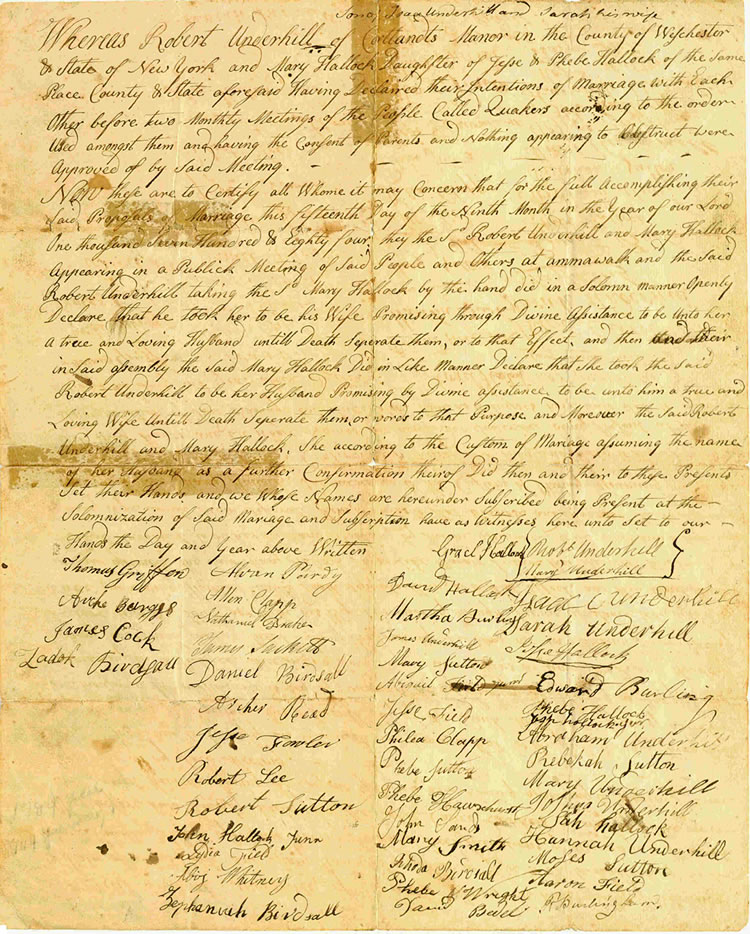 Son of Isaac Underhill and Sarah his wife
Whereas Robert Underhill of Cortlandts Manor in the County of Westchester
& State of New York and Mary Hallock Daughter of Jesse & Phebe Hallock of the Same
Place County & State aforesaid Having Declared their Intentions of Marriage with Each
Other before two Monthly Meetings of the People Called Quakers according to the order
Used amongst them and having the Consent of Parents and Nothing appearing to Obstruct were
Approved of by Said Meeting.
Now these are to Certify all Whome it may Concern that for the full Accomplishing their
Said Proposals of Marriage this fifteenth Day of the Ninth Month in the Year of our Lord
One thousand Seven Hundred & Eighty four, they the Sd Robert Underhill and Mary Hallock
Appearing in a Publick Meeting of Said People and Others at ammawalk and the Said
Robert Underhill taking the Sd Mary Hallock by the hand did in a Solomn manner Openly
Declare that he took her to be his Wife Promising through Divine Assistance to be Unto her
a true and Loving Husband untill Death Seperate them, or to that Effect, and then and their
in Said assembly the Said Mary Hallock Did in Like Manner Declare that She took the Said
Robert Underhill to be her Husband Promising by Divine assistance to be unto him a true and
Loving Wife Untill Death Seperate them, or words to that Purpose and Moreover the Said Robert
Underhill and Mary Hallock, She according to the Custom of Mariage assuming the name
of her Husband as a further Confirmation theirof Did then and their to these Presents
Set their Hands and we Whose Names are hereunder Subscribed being Present at the
Solomnization of Said Mariage and Subscription have as Witnesses here unto Set to our
Hands the Day and Year above Written
Robt Underhill
Mary Underhill
Thomas Griffen
James Cock
Zadok Birdsall
Alvan Purdy
Allen Clapp
Nathaniel
James Sackett
Daniel Birdsall
Archer Read
Jesse Fowler
Robert Lee
Robert Sutton
John Hallock Junr
Lydia Field
Whitney
Zephaniah Birdsall
Hallock
David Hallock
Martha Burling
James Underhill
Mary Sutton
Abigail
Jesse Field
Philea Clapp
Phebe Sutton
Phebe Hawxhurst
John Sands
Mary Smith
Birdsall
Phebe Wright
David
Isaac Underhill
Sarah Underhill
Jesse Hallock
Edward Burling
Phebe Hallock
Abraham Underhill
Rebekah Sutton
Mary Underhill
Joshua Underhill
Hallock
Hannah Underhill
Moses Sutton
Aaron Field